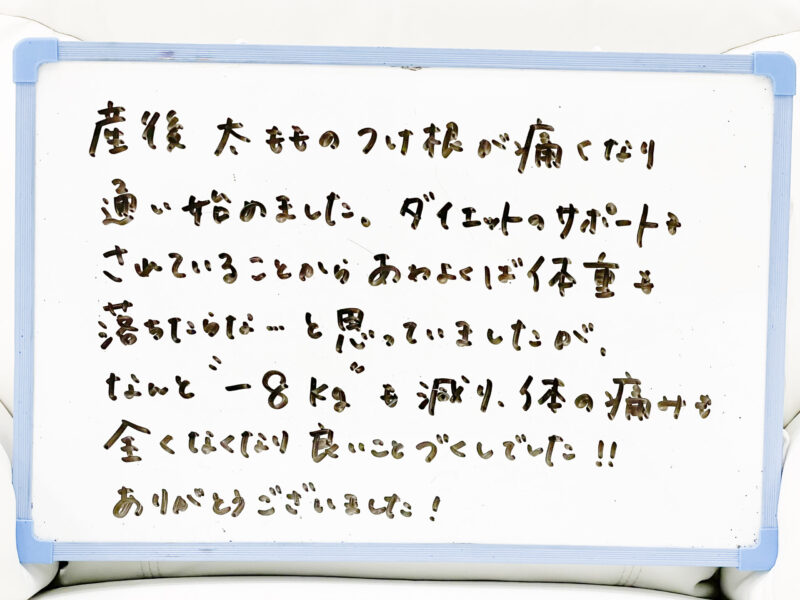 産後 太ももの つけ根が痛くなり
通い始めました。ダイエットのサポートも
されていることから あわよくば体重も
落ちたらな…と思っていましたが、
なんと"−8kg"も減り、体の痛みも
全くなくなり 良いことづくしでした!!
ありがとうございました!